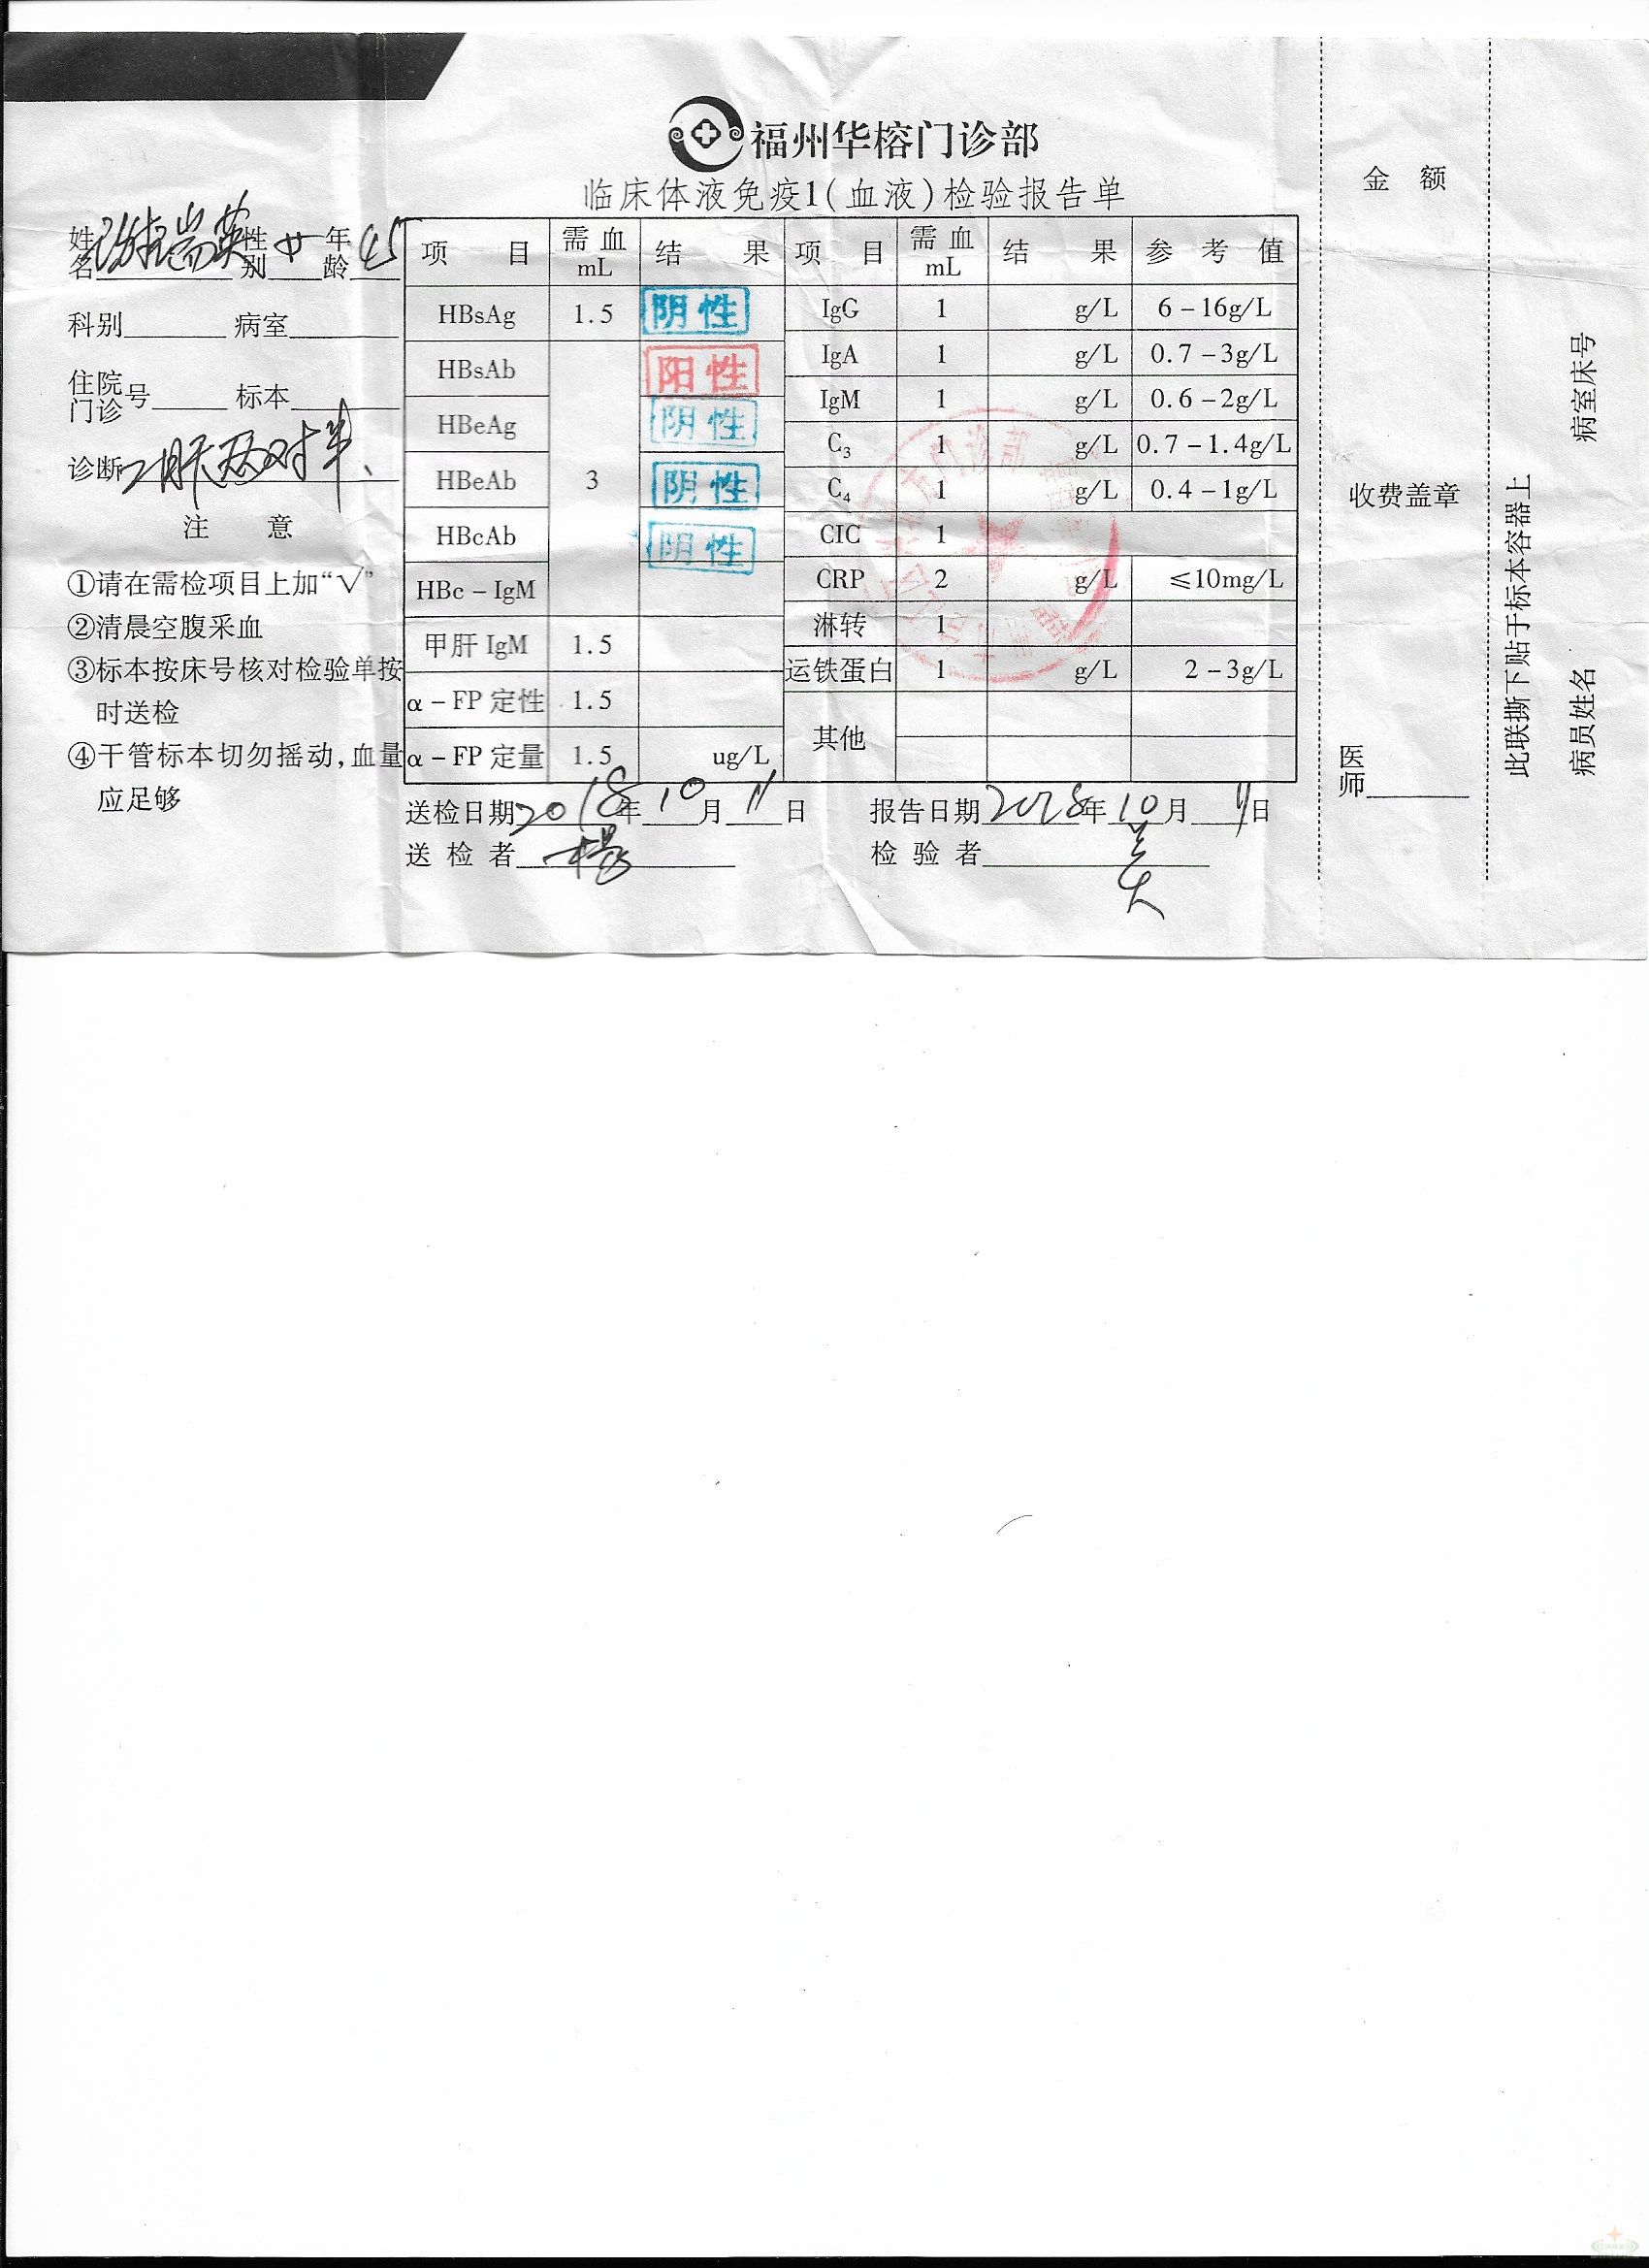 福州华榕门诊部
临床体液免疫1(血液)检验报告单
姓名 瑞英 性别 女 年龄 45
科别 病室
住院门诊号 标本
诊断 乙肝两对半、
注 意
①请在需检项目上加“√”
②清晨空腹采血
③标本按床号核对检验单按
时送检
④干管标本切勿摇动,血量
应足够
项 目 需血mL 结 果 项 目 需血mL 结 果 参 考 值
HBsAg 1.5 阴性 IgG 1 g/L 6-16g/L
HBsAb 阳性 IgA 1 g/L 0.7-3g/L
HBeAg 阴性 IgM 1 g/L 0.6-2g/L
HBeAb 3 阴性 C₃ 1 g/L 0.7-1.4g/L
HBcAb 阴性 C₄ 1 g/L 0.4-1g/L
HBc-IgM CIC 1
甲肝 IgM 1.5 CRP 2 g/L ≤10mg/L
α-FP 定性 1.5 淋转 1
α-FP 定量 1.5 ug/L 运铁蛋白 1 g/L 2-3g/L
其他
送检日期 2018年10月11日 报告日期 2018年10月11日
送 检 者 杨 检 验 者
金 额
收费盖章
医师
此联撕下贴于标本容器上
病室床号
病员姓名